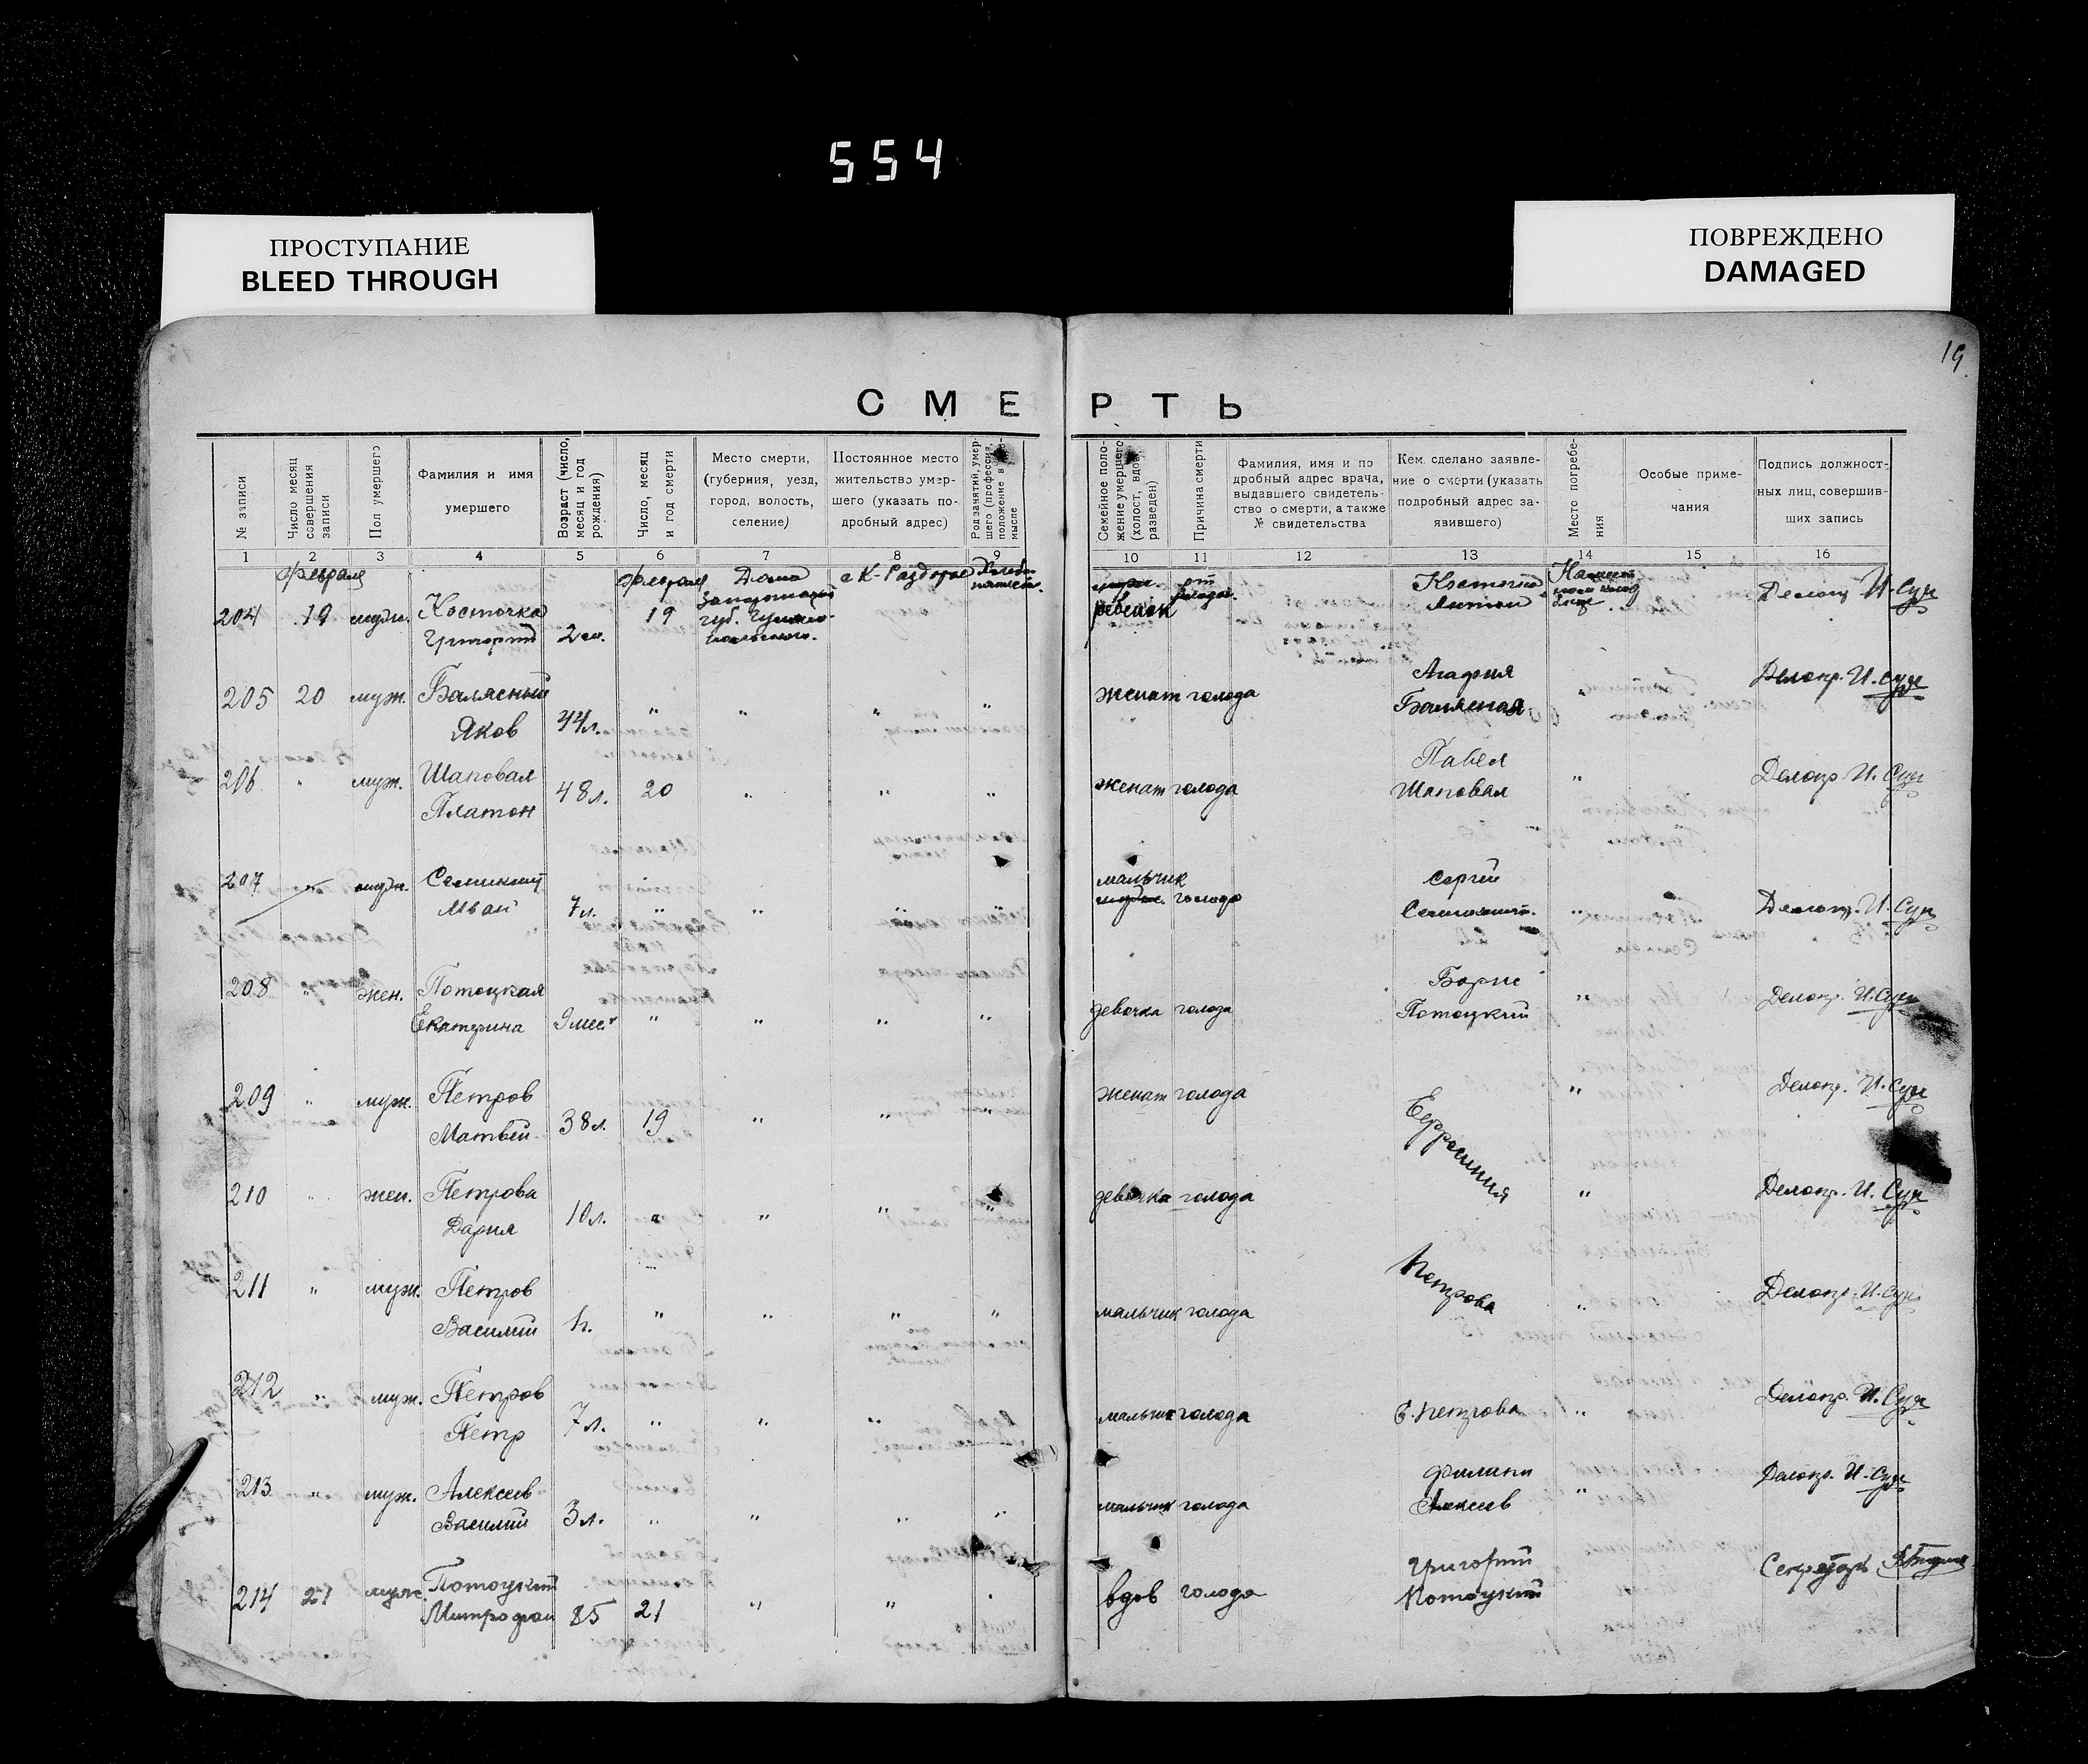 554
ПРОСТУПАНИЕ
BLEED THROUGH
ПОВРЕЖДЕНО
DAMAGED
19
СМЕРТЬ
№ записи
Число месяц совершения записи
Пол умершего
Фамилия и имя
умершего
Возраст (число, месяц и год рождения)
Число, месяц и год смерти
Место смерти,
(губерния, уезд,
город, волость,
селение)
Постоянное место
жительство умер-
шего (указать по-
дробный адрес)
Род занятий, умер-
шего (профессия,
положение в
мысле
Семейное поло-
жение умершего
(холост, вдов,
разведен)
Причина смерти
Фамилия, имя и по
дробный адрес врача,
выдавшего свидетель-
ство о смерти, а также
№ свидетельства
Кем сделано заявле-
ние о смерти (указать
подробный адрес за-
явившего)
Место погребе-
ния
Особые приме-
чания
Подпись должност-
ных лиц, совершив-
ших запись
1 2 3 4 5 6 7 8 9 10 11 12 13 14 15 16
февраля февраля Дома с К-Раздоры от Косточка
204 19 муж. Косточка 19 губ. ребенок голода Делопр. И. Сук
Григорий 2
205 20 муж. Балясный " " " " женат голода Агафия Делопр. И. Сук
Яков 44л. Балясная "
206 " муж. Шаповал 48л. 20 " " " женат голода Павел " Делопр. И. Сук
Платон Шаповал
207 " муж. мальчик Сергей
Иван 7л. " " " голода " Делопр. И. Сук
208 " жен. Потоцкая Борис " Делопр. И. Сук
Екатерина 9 мес. " " " " девочка голода Потоцкий
209 " муж. Петров женат голода " Делопр. И. Сук
Матвей 38л. 19 " " " Ефросиния
210 " жен. Петрова девочка голода " Делопр. И. Сук
Дария 10л. " " " "
211 " муж. Петров Петрова Делопр. И. Сук
Василий " " " " мальчик голода "
212 " муж. Петров Делопр. И. Сук
Петр 7л. " " " мальчик голода Е. Петрова "
213 " муж. Алексеев Филипп " Делопр. И. Сук
Василий 3л. " " " " мальчик голода Алексеев
214 21 муж. Потоцкий Григорий Секретарь
Митрофан 85 21 " " вдов голода Потоцкий